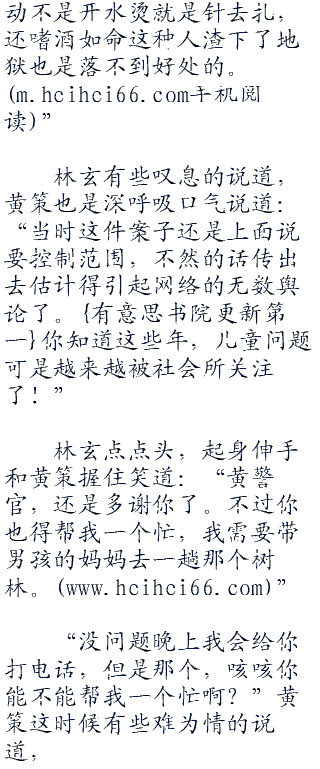 动不是开水烫就是针去扎，
还嗜酒如命这种人渣下了地
狱也是落不到好处的。
(m.hcihci66.com手机阅
读)”
林玄有些叹息的说道，
黄策也是深呼吸口气说道：
“当时这件案子还是上面说
要控制范围，不然的话传出
去估计得引起网络的无数舆
论了。{有意思书院更新第
一}你知道这些年，儿童问题
可是越来越被社会所关注
了！”
林玄点点头，起身伸手
和黄策握住笑道：“黄警
官，还是多谢你了。不过你
也得帮我一个忙，我需要带
男孩的妈妈去一趟那个树
林。(www.hcihci66.com)”
“没问题晚上我会给你
打电话，但是那个，咳咳你
能不能帮我一个忙啊？”黄
策这时候有些难为情的说
道，